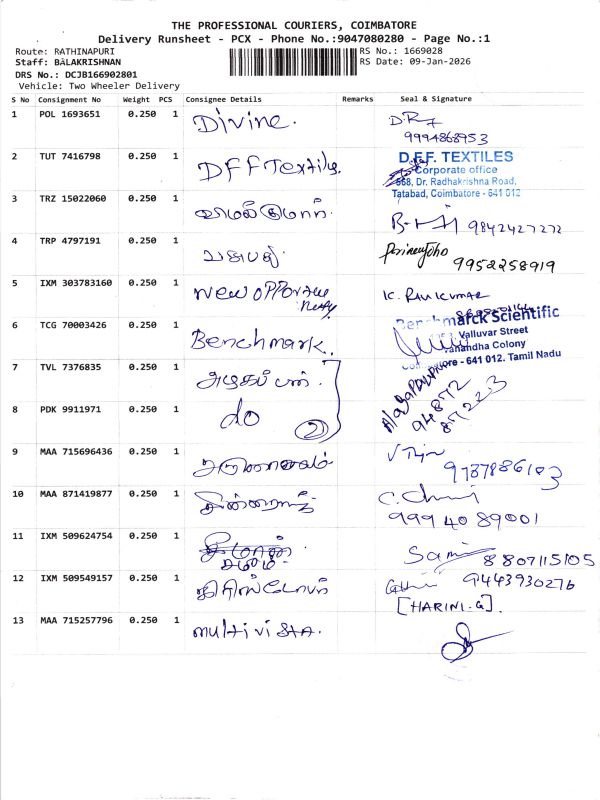 THE PROFESSIONAL COURIERS, COIMBATORE
Delivery Runsheet - PCX - Phone No.:9047080280 - Page No.:1
Route: RATHINAPURI
Staff: BALAKRISHNAN
DRS No.: DCJB166902801
Vehicle: Two Wheeler Delivery
RS No.: 1669028
RS Date: 09-Jan-2026
S No Consignment No Weight PCS Consignee Details Remarks Seal & Signature
1 POL 1693651 0.250 1 Divine.
9994868953
2 TUT 7416798 0.250 1 DFF Textile.
D.F.F. TEXTILES
Corporate office
568, Dr. Radhakrishna Road,
Tatabad, Coimbatore - 641 012
3 TRZ 15022060 0.250 1
9842427272
4 TRP 4797191 0.250 1
9952258919
5 IXM 303783160 0.250 1 New
K. RAVIKUMAR
6 TCG 70003426 0.250 1 Benchmark.
Benchmarck Scientific
Valluvar Street
Colony
641 012. Tamil Nadu
7 TVL 7376835 0.250 1 அழகப்பன்.
94872
87223
8 PDK 9911971 0.250 1 do (2)
9 MAA 715696436 0.250 1 அருணாசலம்
10 MAA 871419877 0.250 1
9994089001
11 IXM 509624754 0.250 1
8807115105
12 IXM 509549157 0.250 1
9443930276
[HARINI.G]
13 MAA 715257796 0.250 1 multivista.